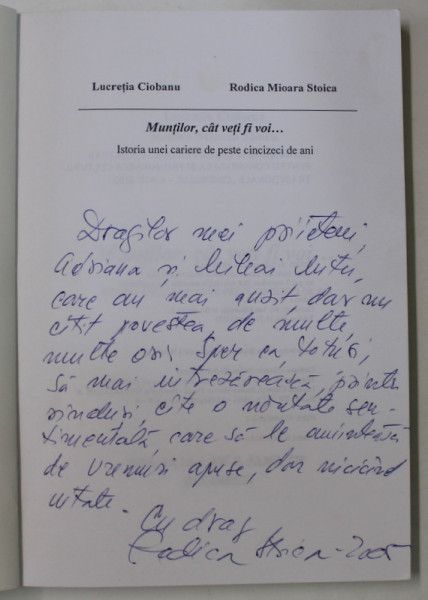 Lucreția Ciobanu Rodica Mioara Stoica
Munților, cât veți fi voi...
Istoria unei cariere de peste cincizeci de ani
Dragilor mei prieteni,
Adriana și Mihai Mitu,
care au mai auzit, dar nu
citit povestea, de multe,
multe ori. Sper ca, totuși,
să mai întrezărească, printre
rînduri, cîte o noutate sen-
timentală care să le amintească
de vremuri apuse, dar nicicînd
uitate.
Cu drag
Rodica Stoica - 2005